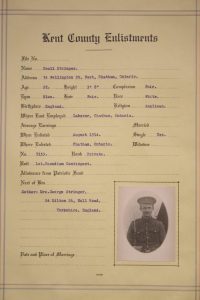 Kent County Enlistments
File No.
Name Cecil Stringer.
Address 74 Wellington St. West, Chatham, Ontario.
Age Height 5' 8" Complexion Fair.
Eyes Blue. Hair Fair. Race White.
Birthplace England. Religion Anglican.
Where Last Employed Laborer, Chatham, Ontario.
Average Earnings Married
When Enlisted August 1914. Single Yes.
Where Enlisted Chatham, Ontario. Widower
No. Rank Private.
Unit 1st. Canadian Contingent.
Allowance from Patriotic Fund
Next of Kin
Mother: Mrs. George Stringer,
24 Hilton St., Hull Road,
Yorkshire, England.
Date and Place of Marriage